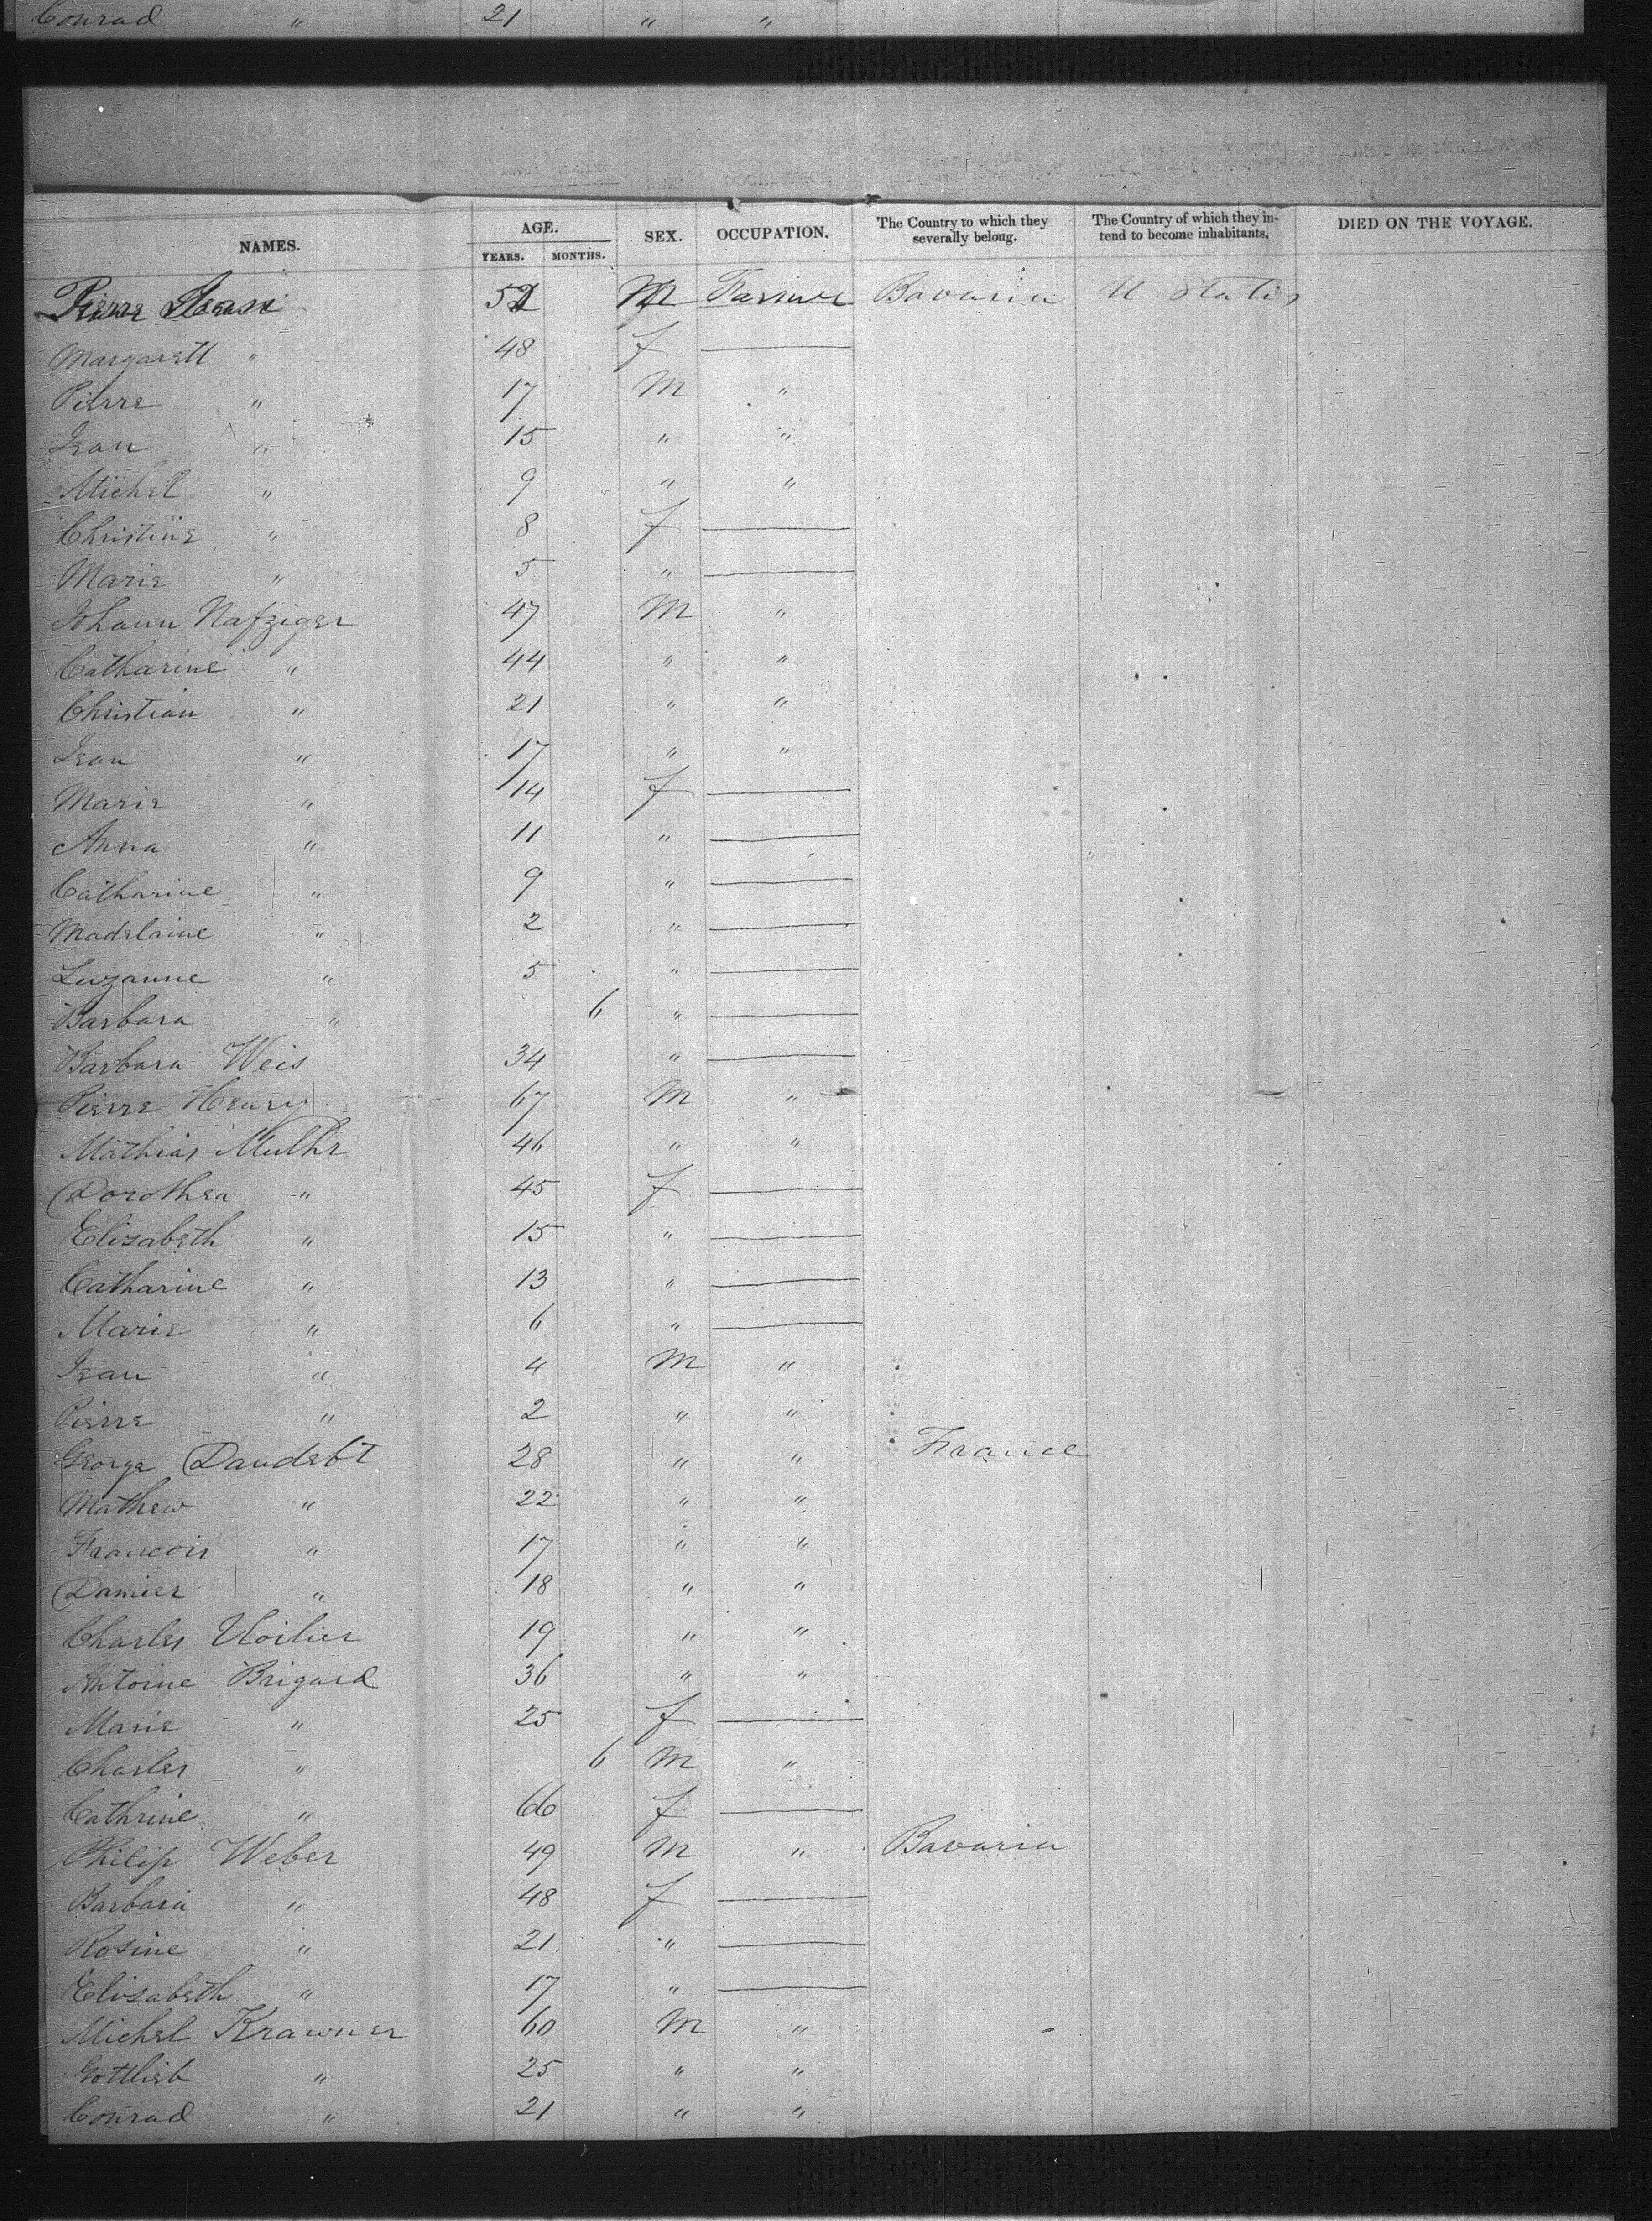 Conrad " 21 " "
NAMES. AGE. YEARS. MONTHS. SEX. OCCUPATION. The Country to which they severally belong. The Country of which they intend to become inhabitants. DIED ON THE VOYAGE.
Pierre Jean 52 M Farmer Bavaria U States
Margarett " 48 f —
Pierre " 17 M "
Jean " 15 " "
Michel " 9 " "
Christine " 8 f —
Marie " 5 " —
Johann Nafziger 47 M "
Catharine " 44 " "
Christian " 21 " "
Jean " 17 " "
Marie " 14 f —
Anna " 11 " —
Catharine " 9 " —
Madelaine " 2 " —
Suzanne " 5 " —
Barbara " 6 " —
Barbara Weis 34 " —
Pierre Henry 67 M "
Mathias 46 " "
Dorothea " 45 f —
Elizabeth " 15 " —
Catharine " 13 " —
Marie " 6 " —
Jean " 4 M "
Pierre " 2 " "
George Daudebt 28 " " France
Mathew " 22 " "
Francois " 17 " "
Damier " 18 " "
Charles 19 " "
Antoine Brigard 36 " "
Marie " 25 f —
Charles " 6 M "
Cathrine " 66 f —
Philip Weber 49 M " Bavaria
Barbara " 48 f —
Rosine " 21 " —
Elisabeth " 17 " —
Michel Krawner 60 M "
Gottlieb " 25 " "
Conrad " 21 " "